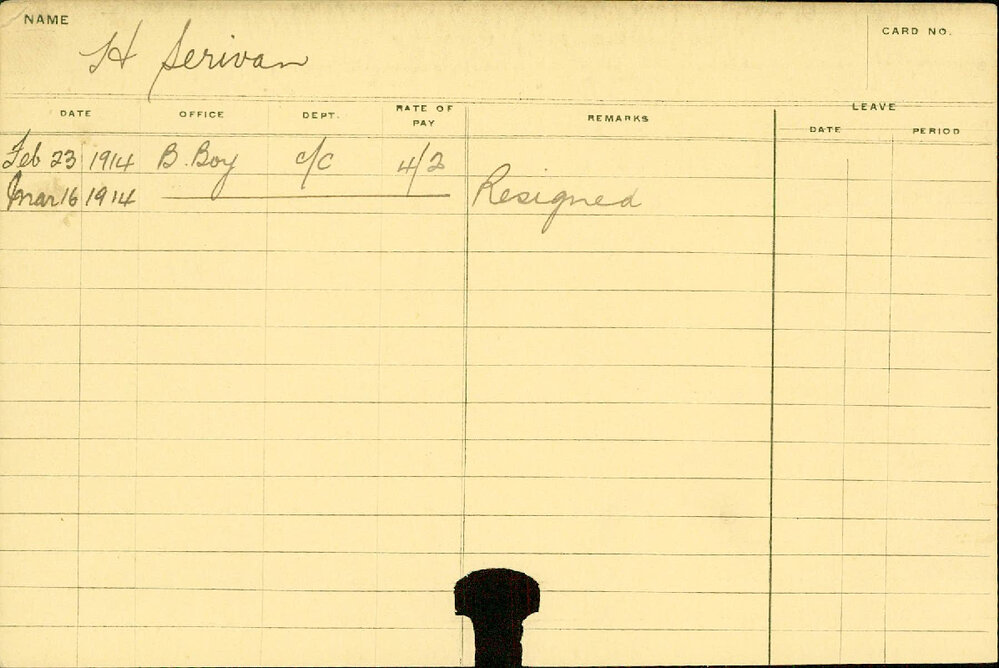 NAME
H Serivan
CARD NO.
DATE OFFICE DEPT. RATE OF PAY REMARKS LEAVE
DATE PERIOD
Feb 23 1914 B. Boy c/c 4/2
Mar 16 1914 Resigned